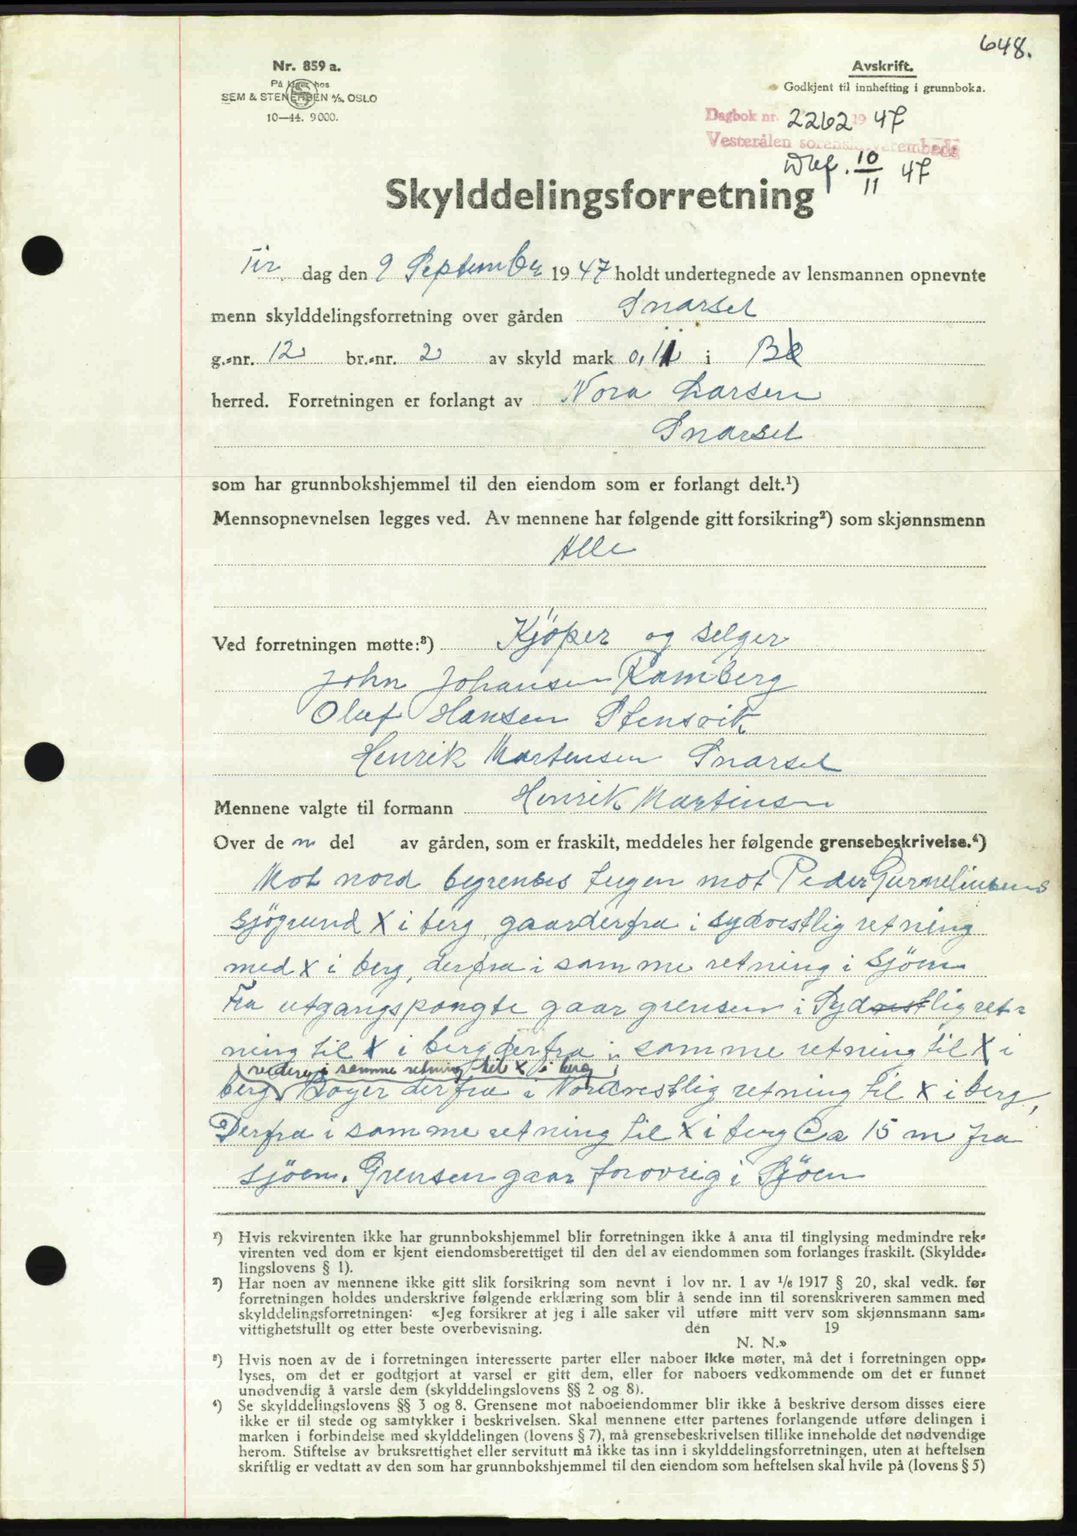 648.
Nr. 859 a.
På lager hos
SEM & STENERSEN A/S, OSLO
10—44. 9000.
Avskrift.
Godkjent til innhefting i grunnboka.
Dagbok nr. 2262 19 47
Vesterålen sorenskriverembede
10/11 47
Skylddelingsforretning
Tirsdag den 9 September 1947 holdt undertegnede av lensmannen opnevnte
menn skylddelingsforretning over gården Snarset
g.-nr. 12 br.-nr. 2 av skyld mark 0,11 i Bø
herred. Forretningen er forlangt av Nora Larsen
Snarset
som har grunnbokshjemmel til den eiendom som er forlangt delt.¹)
Mennsopnevnelsen legges ved. Av mennene har følgende gitt forsikring²) som skjønnsmenn
Alle
Ved forretningen møtte:³) Kjöper og selger
John Johansen Ramberg
Olaf Hansen Stensvik
Henrik Martensen Snarset
Mennene valgte til formann Henrik Martinsen
Over den del av gården, som er fraskilt, meddeles her følgende grensebeskrivelse.⁴)
Mot nord begrenses tugen mot Peder
Sjögrund X i berg, gaar derfra i sydvestlig retning
med X i berg, derfra i samme retning i Sjöen
Fra utgangspongte gaar grensen i Sydvestlig ret-
ning til X i berg derfra i samme retning til X i
videre i samme retning til X i berg
berg Böyer derfra i Nordvestlig retning til X i berg,
Derfra i samme retning til X i berg Ca 15 m fra
Sjöen. Grensen gaar forovrig i Sjöen
¹) Hvis rekvirenten ikke har grunnbokshjemmel blir forretningen ikke å anta til tinglysing medmindre rek-
virenten ved dom er kjent eiendomsberettiget til den del av eiendommen som forlanges fraskilt. (Skyldde-
lingslovens § 1).
²) Har noen av mennene ikke gitt slik forsikring som nevnt i lov nr. 1 av 1/6 1917 § 20, skal vedk. før
forretningen holdes underskrive følgende erklæring som blir å sende inn til sorenskriveren sammen med
skylddelingsforretningen: «Jeg forsikrer at jeg i alle saker vil utføre mitt verv som skjønnsmann sam-
vittighetsfullt og etter beste overbevisning. den 19
N. N.»
³) Hvis noen av de i forretningen interesserte parter eller naboer ikke møter, må det i forretningen opp-
lyses, om det er godtgjort at varsel er gitt dem, eller for naboers vedkommende om det er funnet
unødvendig å varsle dem (skylddelingslovens §§ 2 og 8).
⁴) Se skylddelingslovens §§ 3 og 8. Grensene mot naboeiendommer blir ikke å beskrive dersom disses eiere
ikke er til stede og samtykker i beskrivelsen. Skal mennene etter partenes forlangende utføre delingen i
marken i forbindelse med skylddelingen (lovens § 7), må grensebeskrivelsen tillike inneholde det nødvendige
herom. Stiftelse av bruksrettighet eller servitutt må ikke tas inn i skylddelingsforretningen, uten at heftelsen
skriftlig er vedtatt av den som har grunnbokshjemmel til den eiendom som heftelsen skal hvile på (lovens § 5)